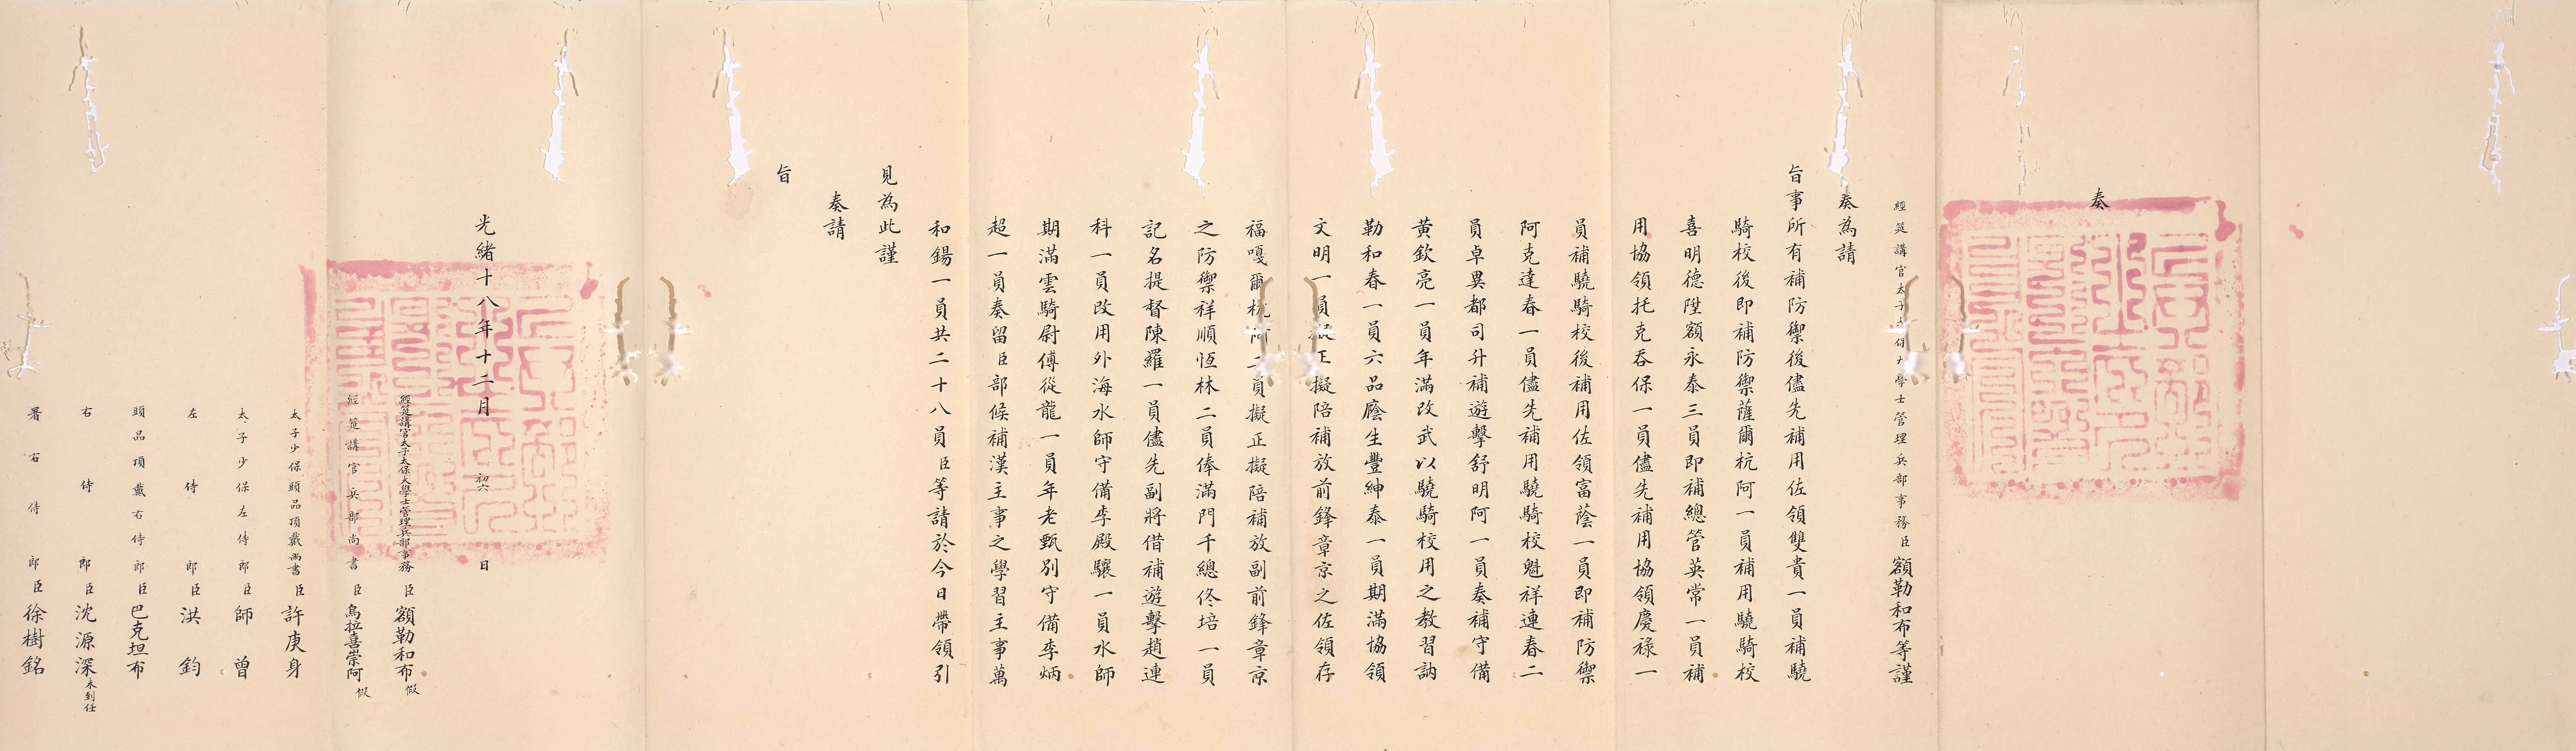 奏
經筵講官太子太保大學士管理兵部事務臣額勒和布等謹
奏為請
旨事所有補防禦後儘先補用佐領雙貴一員補驍
騎校後即補防禦薩爾杭阿一員補用驍騎校
喜明德陞額永泰三員即補總管英常一員補
用協領托克吞保一員儘先補用協領慶祿一
員補驍騎校後補用佐領富蔭一員即補防禦
阿克達春一員儘先補用驍騎校魁祥連春二
員卓異都司升補遊擊舒明阿一員奏補守備
黃欽亮一員年滿改武以驍騎校用之教習訥
勒和春一員六品廕生豐紳泰一員期滿協領
文明一員擬正擬陪補放前鋒章京之佐領存
福嘎爾杭阿二員擬正擬陪補放副前鋒章京
之防禦祥順恆林二員俸滿門千總佟培一員
記名提督陳羅一員儘先副將借補遊擊趙連
科一員改用外海水師守備李殿驤一員水師
期滿雲騎尉傅從龍一員年老甄別守備李炳
超一員奏留臣部候補漢主事之學習主事萬
和錫一員共二十八員臣等請於今日帶領引
見為此謹
奏請
旨
光緒十八年十二月初六日
經筵講官太子太保大學士管理兵部事務臣額勒和布假
經筵講官兵部尚書臣烏拉喜崇阿假
太子少保頭品頂戴尚書臣許庚身
太子少保左侍郎臣師曾
左侍郎臣洪鈞
頭品頂戴右侍郎臣巴克坦布
右侍郎臣沈源深未到任
署右侍郎臣徐樹銘